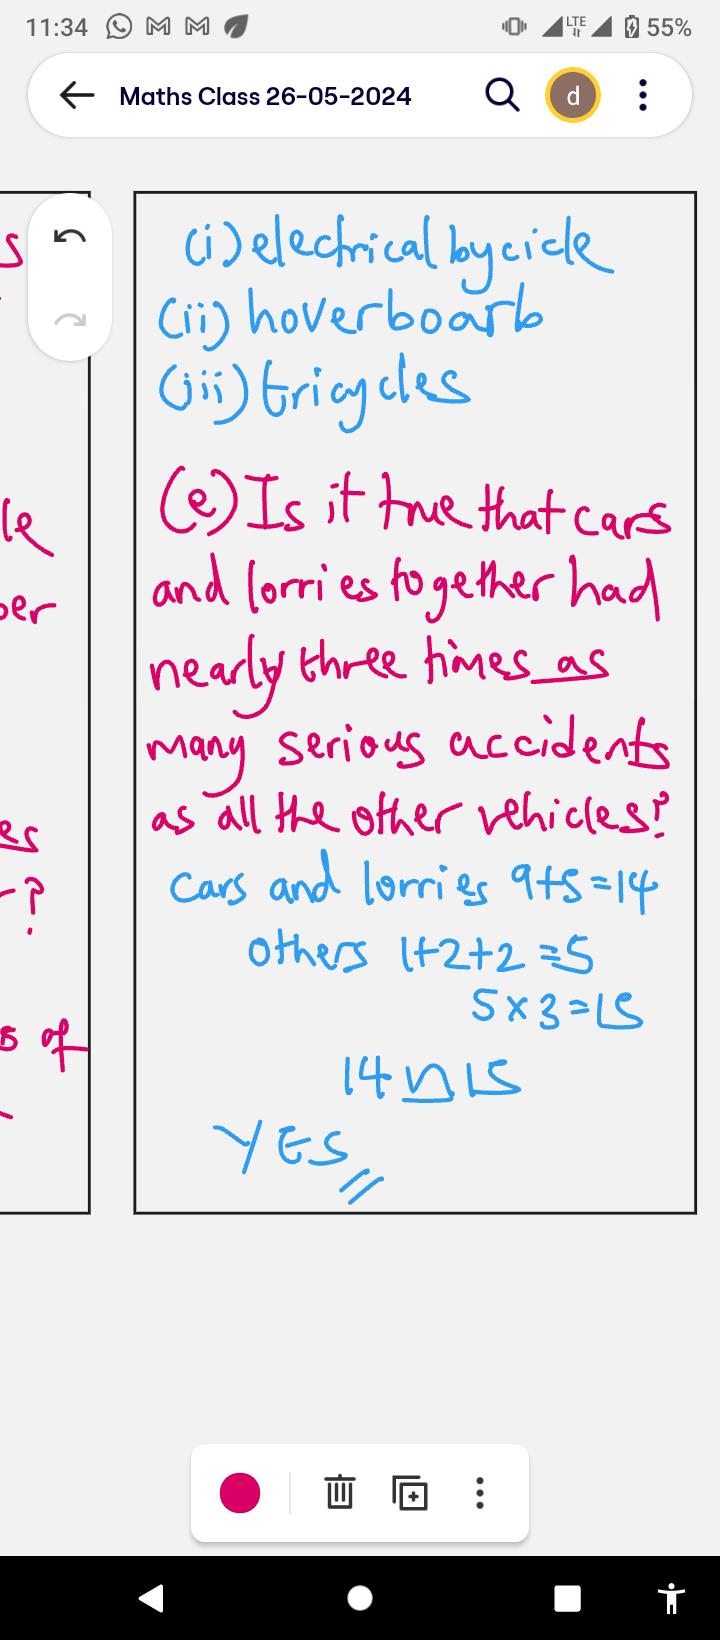 11:34 LTE 55%
Maths Class 26-05-2024 d
s
le
ber
es
r?
s of
(i) electrical bycicle
(ii) hoverboarb
(iii) tricycles
(e) Is it true that cars
and lorries together had
nearly three times as
many serious accidents
as all the other vehicles?
Cars and lorries 9+5=14
others 1+2+2=5
5×3=15
14 n 15
YES